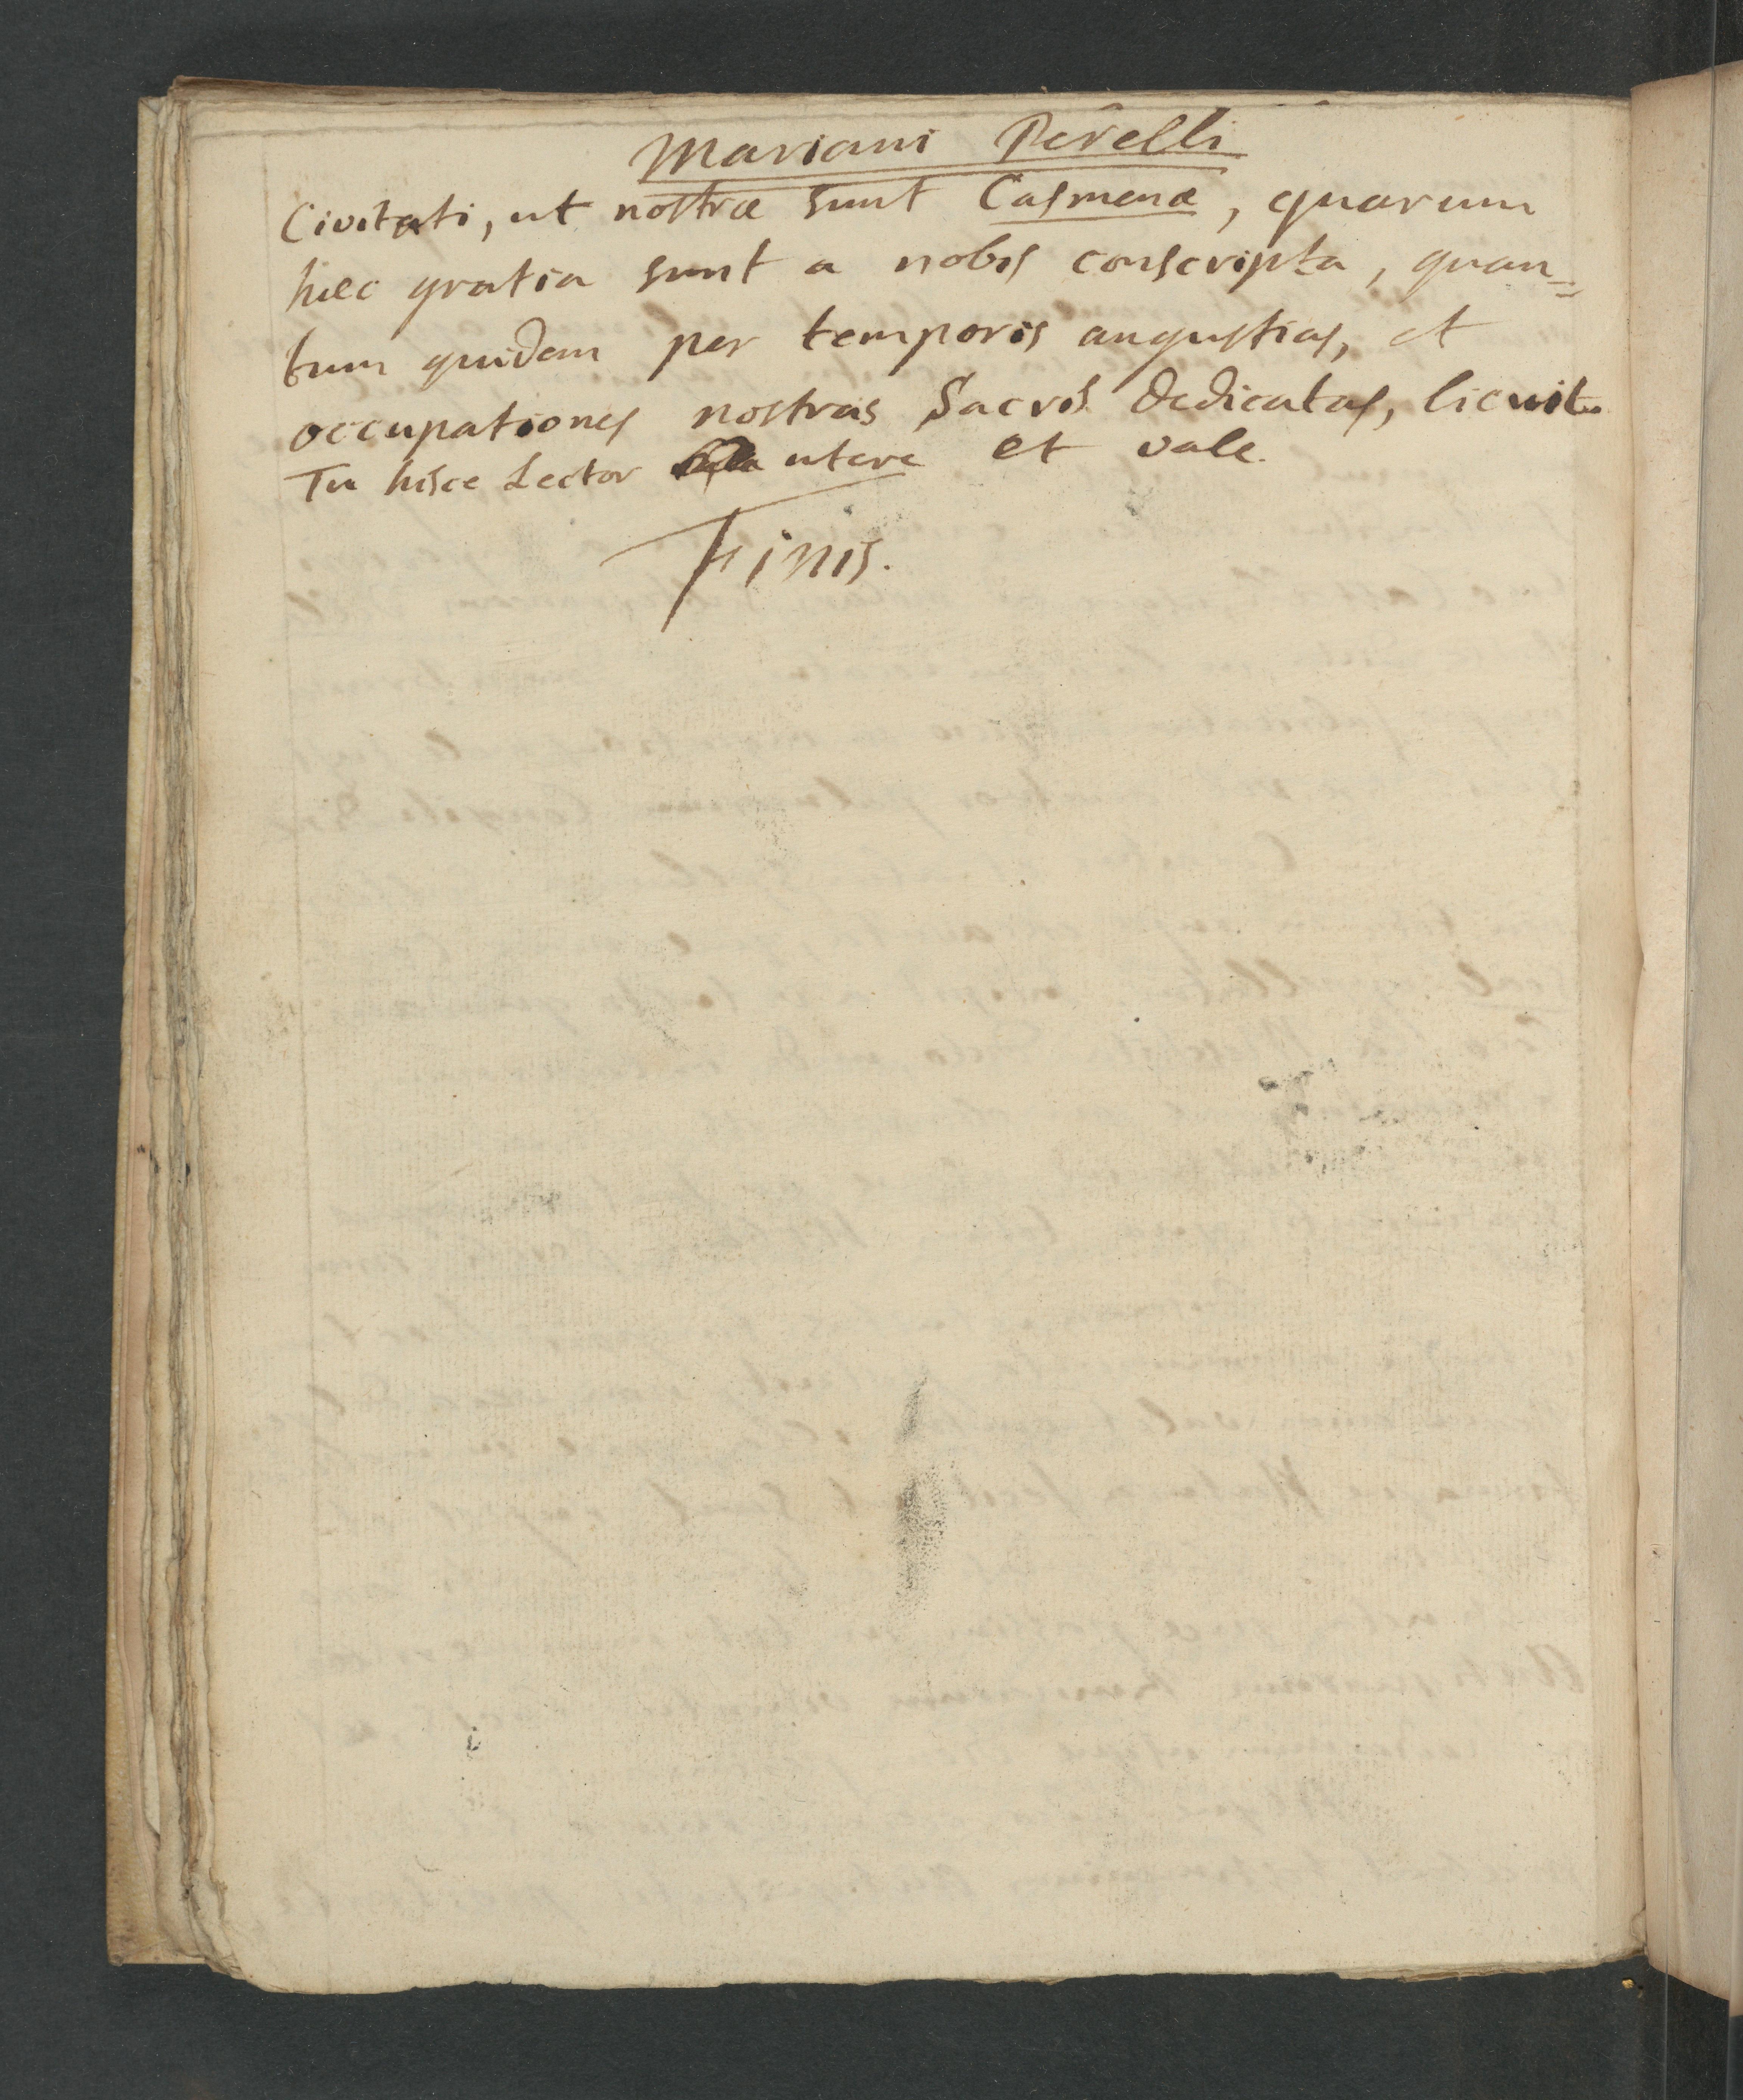 Mariani Perelli
Civitati, ut nostræ sunt Casmenæ, quarum
hæc gratia sunt a nobis conscripta, quan=
tum quidem per temporis angustias, et
occupationes nostras Sacris dedicatas, licuit.
Tu hisce Lector utere et vale.
Finis.